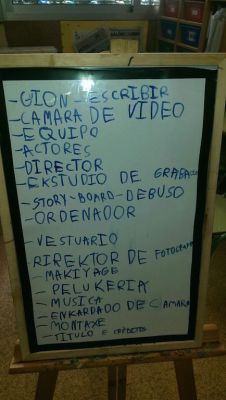 -GION-ESCRIBIR
-CAMARA DE VIDEO
-EQUIPO
-ACTORES
-DIRECTOR
-EKSTUDIO DE GRABACIO
-STORY-BOARD-DEBUSO
-ORDENADOR
-VESTUARIO
RIREKTOR DE FOTOGRAFIA
-MAKIYAGE
-PELUKERIA
-MUSICA
-ENKARDADO DE CAMARA
-MONTAXE
-TITULO E CREDITOS